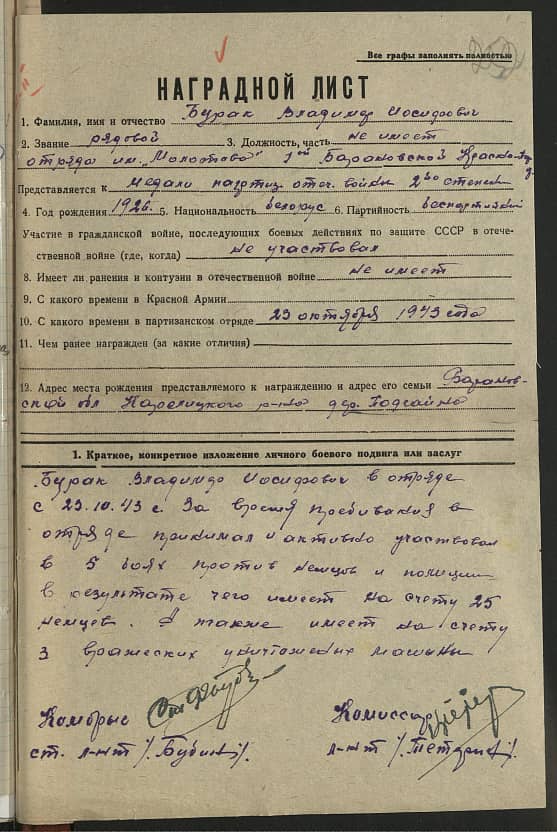 Все графы заполнять полностью
НАГРАДНОЙ ЛИСТ
1. Фамилия, имя и отчество Бурак Владимир Иосифович
2. Звание рядовой 3. Должность, часть не имеет
отряда им. „Молотова" 1ой Барановской
Представляется к медали партиз. отеч. войны 2ой степени
4. Год рождения 1926. 5. Национальность белорус 6. Партийность беспартийный
Участие в гражданской войне, последующих боевых действиях по защите СССР в отече-
ственной войне (где, когда) не участвовал
8. Имеет ли ранения и контузии в отечественной войне не имеет
9. С какого времени в Красной Армии
10. С какого времени в партизанском отряде 23 октября 1943 года
11. Чем ранее награжден (за какие отличия)
12. Адрес места рождения представляемого к награждению и адрес его семьи Баранов-
ской обл Карелицкого р-на дер.
1. Краткое, конкретное изложение личного боевого подвига или заслуг
Бурак Владимир Иосифович в отряде
с 23.10.43 г. За время пребывания в
отряде принимал и активно участвовал
в 5 боях против немцев и полиции
в результате чего имеет на счету 25
немцев. А также имеет на счету
3 вражеских уничтожених машины
Комбриг Комиссар
ст. л-нт /. Бубин /. л-нт /.